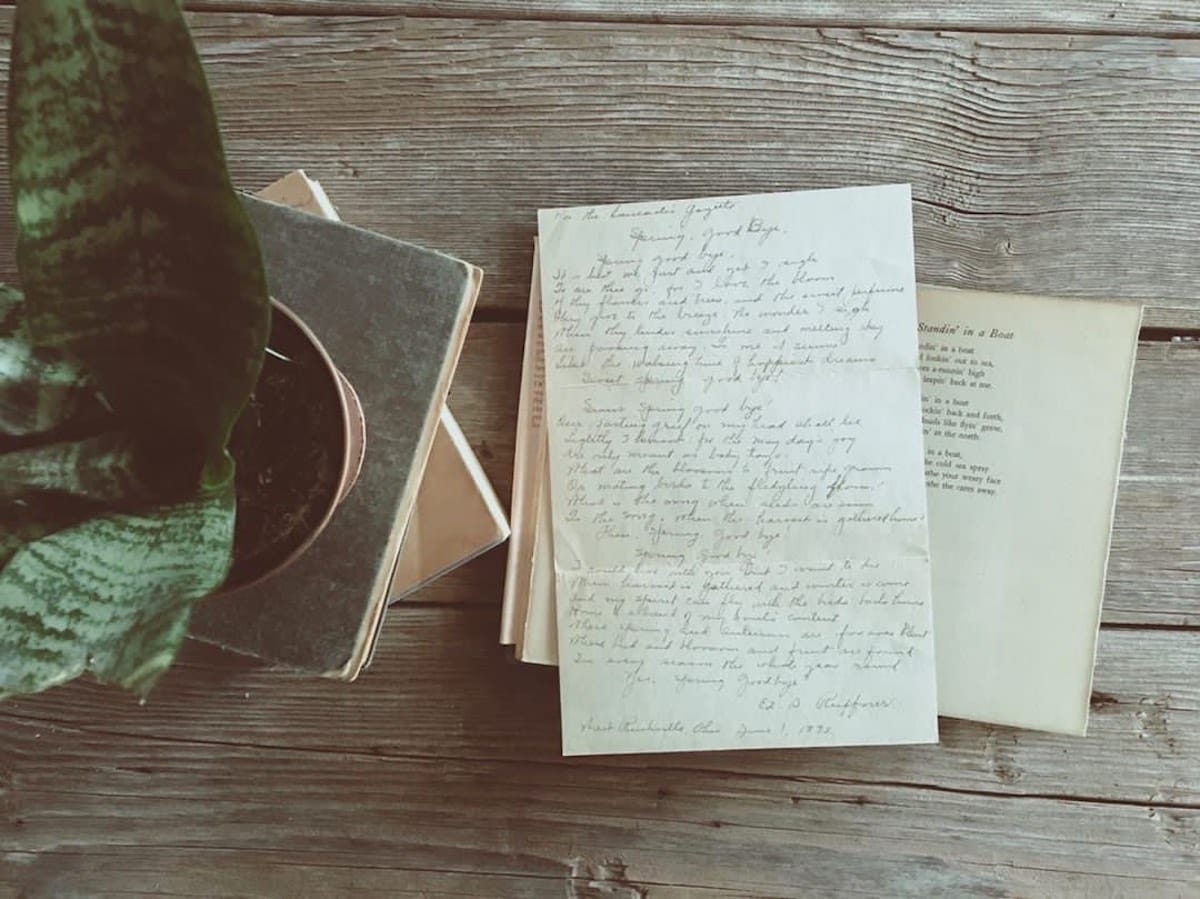 For the Lancaster Gazette
Spring, Good Bye.
Spring good bye.
It is best we part and yet I sigh
To see thee go, for I love the bloom
Of thy flowers and trees, and the sweet perfume
They give to the breeze. No wonder I sigh
When thy tender sunshine and melting sky
Are passing away. To me it seems
Like the waking time of happiest dreams
Sweet Spring good bye!
Sweet Spring good bye!
Deep, lasting grief on my head shall lie
Lightly I for the May day's joy
Are only meant as baby toys.
What are the blossoms to fruit ripe grown
Or nesting birds to the fledgling flown!
What is the song when are
To the song, when the harvest is gathered home!
Then, Spring, Good bye
Spring Good bye
I would live with you But I want to die
When harvest is gathered and winter is come
And my spirit can fly with the birds, back home
Home & of my soul's content
Where spring and Autumn are
Where bud and blossom and fruit are found
In every season the whole year round
Yes, Spring Goodbye
Ed. S.
West Rushville, Ohio June 1, 1898.
Standin' in a Boat
in a boat
lookin' out to sea,
a-runnin' high
leapin' back at me.
in a boat
back and forth,
like flyin' geese,
in the north.
in a boat,
the cold sea spray
your weary face
the cares away.